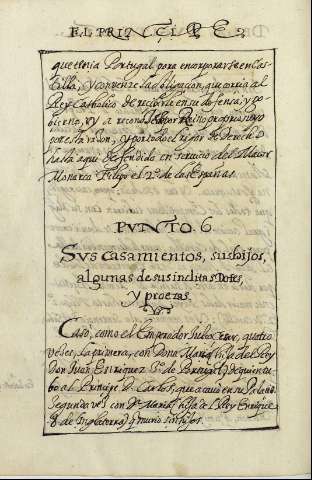 EL PRINCIPE
que tenia Portugal para incorporarse en Cas-
tilla, y convenze la obligacion, que corria al
Rey Catholico de recivirle en su defensa, y go-
bierno, y a reconocer por Reino proprio suyo
por esta razon, y por todo el rigor de Derecho
hasta aqui defendido en servicio del Maior
Monarca Filipo el 2º de las Españas.
PVNTO. 6
Svs casamientos, sus hijos,
algunas de sus inclitas Dotes,
y proezas.
Caso, como el Emperador Julio Cesar, quatro
vezes, la primera, con Dona Maria hija del Rey
Don Juan 3º de Portugal de quien tu-
bo al Principe D. Carlos, que acavo en su
Segunda vez con Dª Maria hija del Rey Enrique
8 de Inglaterra, q murio sin hijos